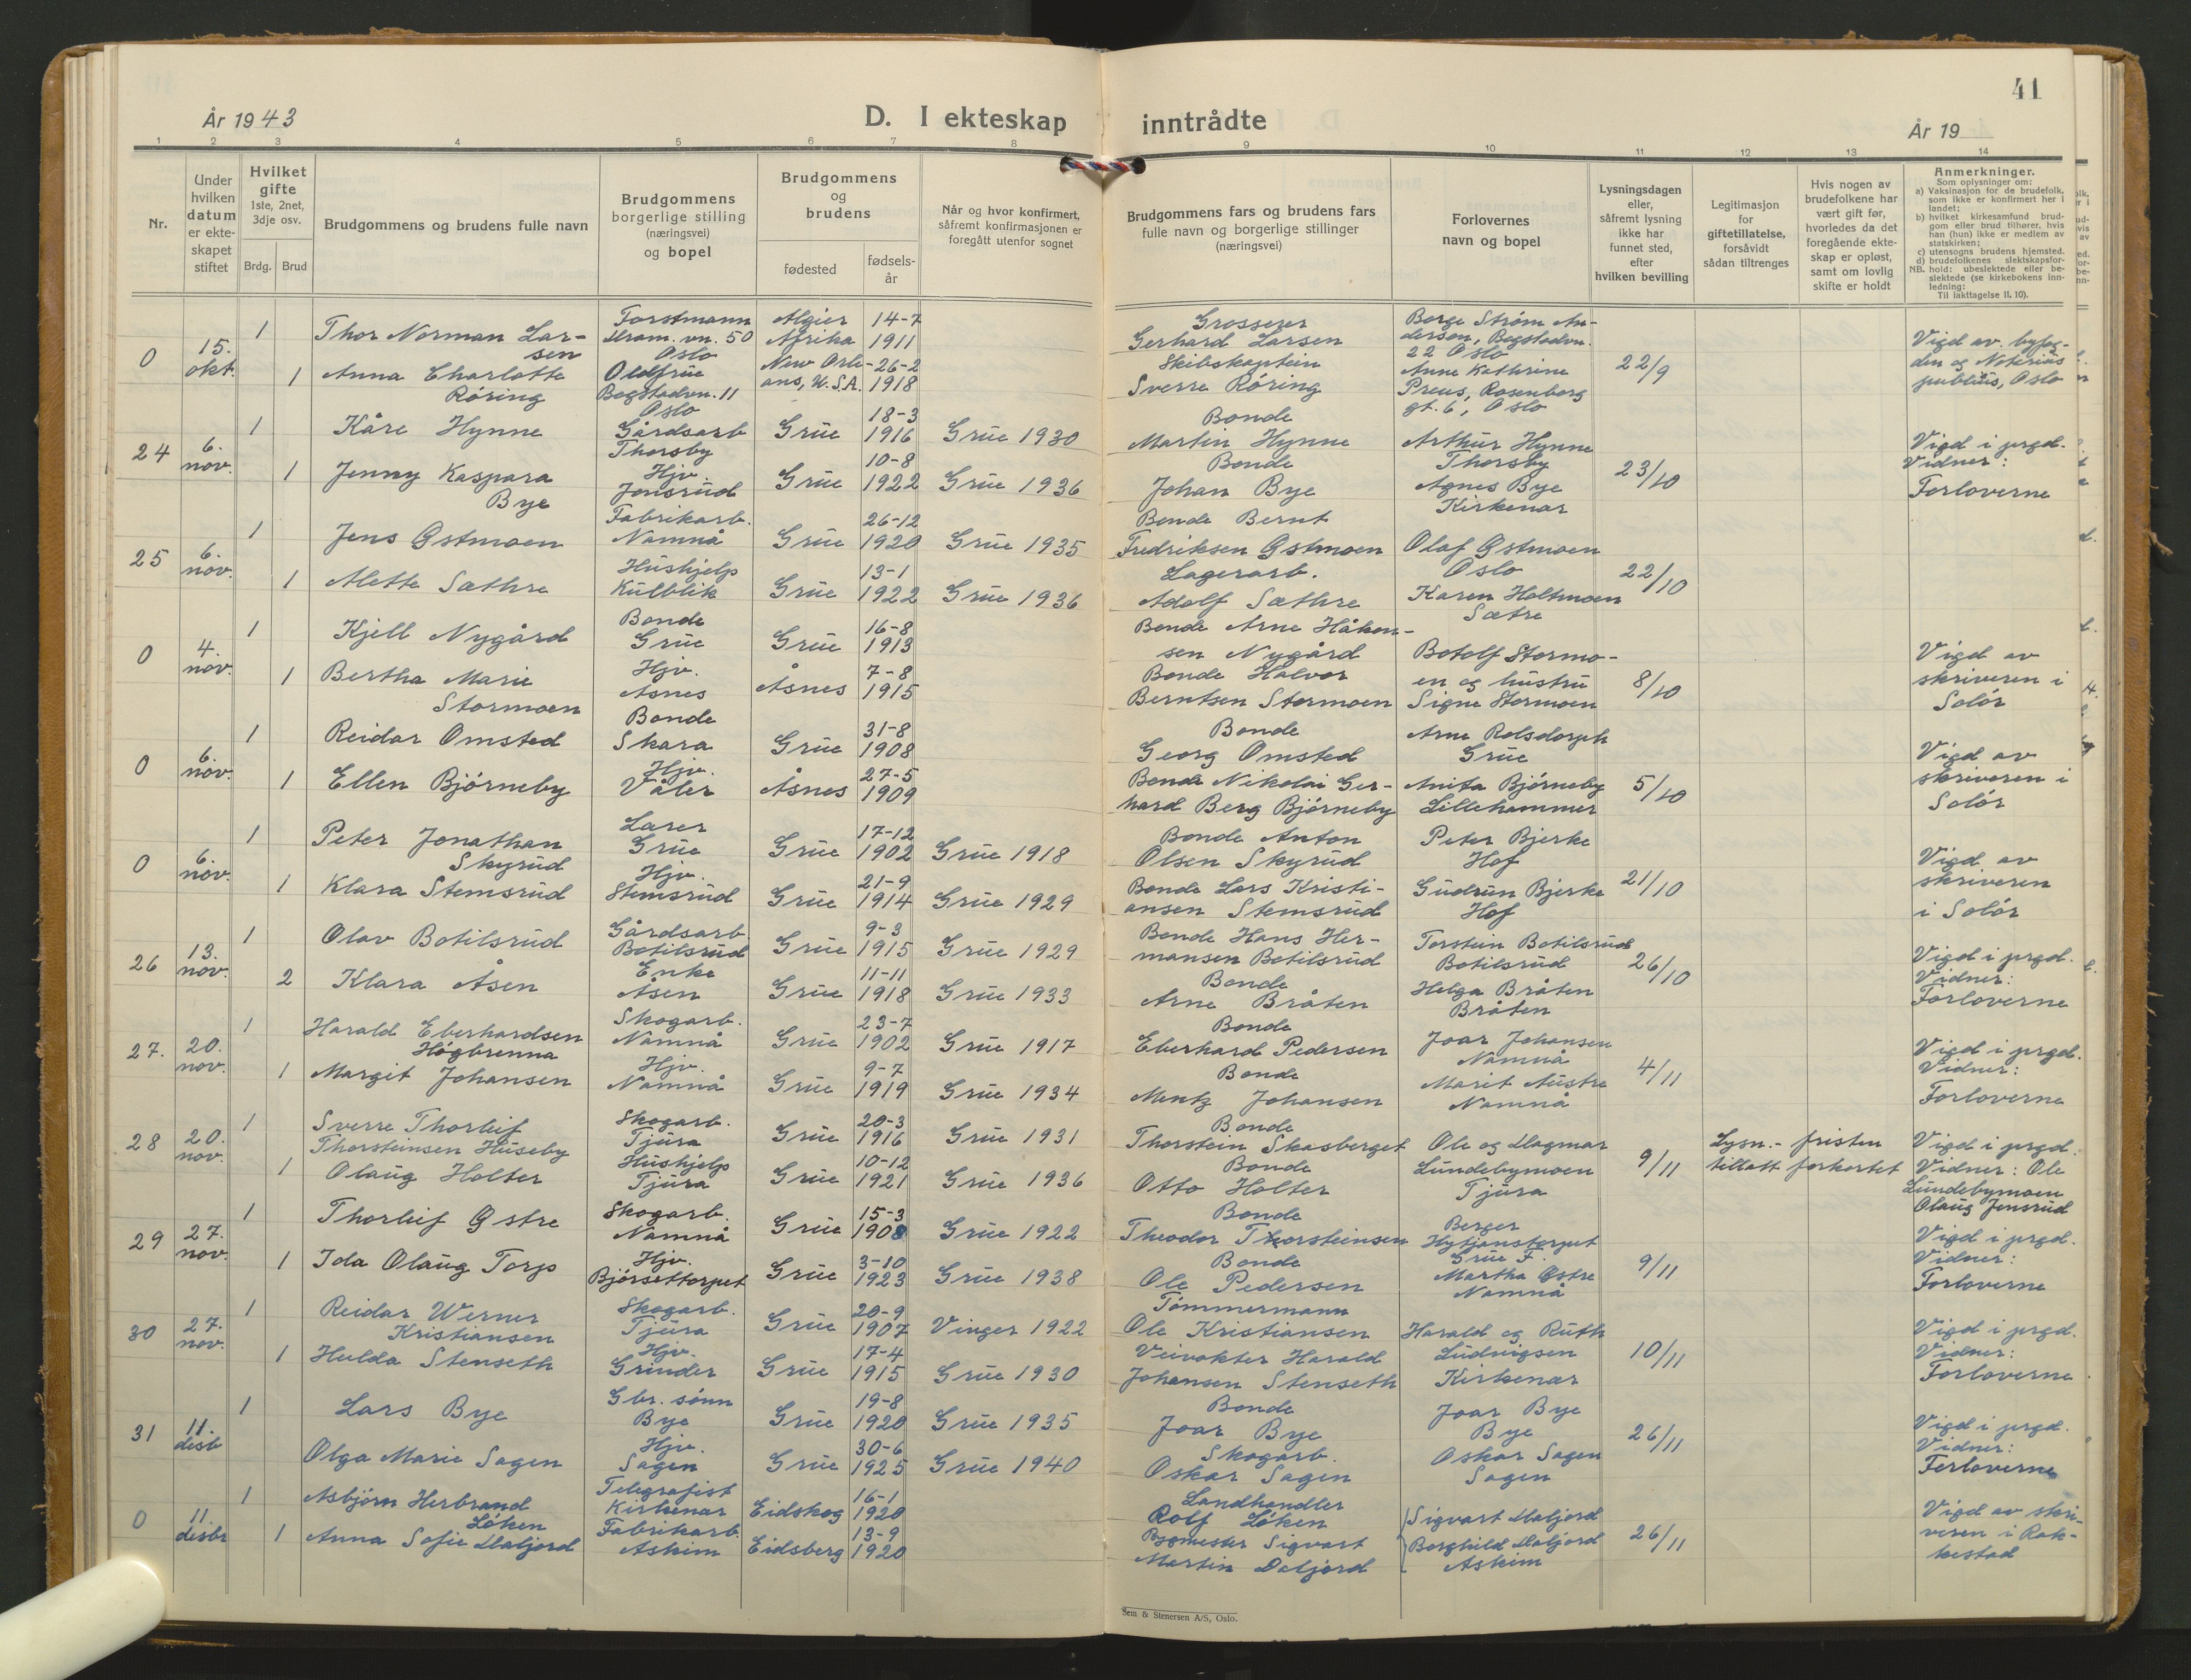 41
År 1943
D. I ekteskap inntrådte
År 19
1 2 3 4 5 6 7 8 9 10 11 12 13 14
Nr.
Under hvilken datum er ekte-skapet stiftet
Hvilket gifte 1ste, 2net, 3dje osv.
Brdg. Brud
Brudgommens og brudens fulle navn
Brudgommens borgerlige stilling (næringsvei) og bopel
Brudgommens og brudens
fødested
fødsels-år
Når og hvor konfirmert, såfremt konfirmasjonen er foregått utenfor sognet
Brudgommens fars og brudens fars fulle navn og borgerlige stillinger (næringsvei)
Forlovernes navn og bopel
Lysningsdagen eller, såfremt lysning ikke har funnet sted, efter hvilken bevilling
Legitimasjon for giftetillatelse, forsåvidt sådan tiltrenges
Hvis nogen av brudefolkene har vært gift før, hvorledes da det foregående ekte-skap er opløst, samt om lovlig skifte er holdt
Anmerkninger.
Som oplysninger om:
a) Vaksinasjon for de brudefolk, som ikke er konfirmert her i landet;
b) hvilket kirkesamfund brud-gom eller brud tilhører, hvis han (hun) ikke er medlem av statskirken;
c) utensogns brudens hjemsted.
d) brudefolkenes slektskapsfor-hold: ubeslektede eller be-slektede (se kirkebokens inn-ledning:
NB. Til iakttagelse II. 10).
0 15. okt. 1 Thor Norman Lar-sen Forstmann Dram. vn. 50 Oslo Algier Afrika 14-7 1911 Grosserer Gerhard Larsen Børge Strøm An-derson, Bogstadvn. 22 Oslo 22/9 Vigd av byfog-den og Notarius publicus, Oslo
1 Anna Charlotte Röring Oldfrue Bogstadvn. 11 Oslo New Orle-ans, U.S.A. 26-2 1918 Skibskaptein Sverre Röring Anne Kathrine Preus, Rosenborg gt. 6, Oslo
24 6. nov. 1 Kåre Hynne Gårdsarb Thorsby Grue 18-3 1916 Grue 1930 Bonde Martin Hynne Arthur Hynne Thorsby 23/10 Vigd i prgd. Vidner: Forloverne
1 Jenny Kaspara Bye Hjv. Jonsrud Grue 10-8 1922 Grue 1936 Bonde Johan Bye Agnes Bye Kirkenær
25 6. nov. 1 Jens Östmoen Fabrikarb. Namnå Grue 26-12 1920 Grue 1935 Bonde Bernt Fredriksen Östmoen Olaf Östmoen Oslo 22/10
1 Alette Sæthre Hushjelp Kulblik Grue 13-1 1922 Grue 1936 Lagerarb. Adolf Sæthre Karen Holtmoen Sætre
0 4. nov. 1 Kjell Nygård Bonde Grue Grue 16-8 1913 Bonde Arne Håkon-sen Nygård Botolf Stormo-en og hustru Signe Stormoen 8/10 Vigd av skriveren i Solör
1 Bertha Marie Stormoen Hjv. Åsnes Åsnes 7-8 1915 Bonde Halvor Berntsen Stormoen
0 6. nov. 1 Reidar Omsted Bonde Skara Grue 31-8 1908 Bonde Georg Omsted Arne Rolsdorph Grue 5/10 Vigd av skriveren i Solör
1 Ellen Björneby Hjv. Våler Åsnes 27-5 1909 Bonde Nikolai Ger-hard Berg Björneby Anita Björneby Lillehammer
0 6. nov. 1 Peter Jonathan Skyrud Lærer Grue Grue 17-12 1902 Grue 1918 Bonde Anton Olsen Skyrud Peter Bjerke Hof 21/10 Vigd av skriveren i Solör
1 Klara Stemsrud Hjv. Stemsrud Grue 21-9 1914 Grue 1929 Bonde Lars Kristi-ansen Stemsrud Gudrun Bjerke Hof
26 13. nov. 1 Olav Botilsrud Gårdsarb. Botilsrud Grue 9-3 1915 Grue 1929 Bonde Hans Her-mansen Botilsrud Torstein Botilsrud Botilsrud 26/10 Vigd i prgd. Vidner: Forloverne
2 Klara Åsen Enke Åsen Grue 11-11 1918 Grue 1933 Bonde Arne Bråten Helga Bråten Bråten
27. 20. nov. 1 Harald Eberhardsen Högbrenna Skogarb. Namnå Grue 23-7 1902 Grue 1917 Bonde Eberhard Pedersen Joar Johansen Namnå 4/11 Vigd i prgd. Vidner: Forloverne
1 Margit Johansen Hjv. Namnå Grue 9-7 1919 Grue 1934 Bonde Mentz Johansen Marit Austre Namnå
28 20. nov. 1 Sverre Thorleif Thorsteinsen Huseby Skogarb. Tjura Grue 20-3 1916 Grue 1931 Bonde Thorstein Skasberget Ole og Dagmar Lundebymoen Tjura 9/11 Lysn.- fristen tillatt forkortet Vigd i prgd. Vidner: Ole Lundebymoen Olaug Jonsrud
1 Olaug Holter Hushjelp Tjura Grue 10-12 1921 Grue 1936 Bonde Otto Holter
29 27. nov. 1 Thorleif Östre Skogarb. Namnå Grue 15-3 1908 Grue 1922 Bonde Theodor Thorsteinsen Berger Hytjanstorpet Grue F. 9/11 Vigd i prgd. Vidner: Forloverne
1 Ida Olaug Torp Hjv. Björsettorpet Grue 3-10 1923 Grue 1938 Bonde Ole Pedersen Martha Östre Namnå
30 27. nov. 1 Reidar Werner Kristiansen Skogarb. Tjura Grue 20-9 1907 Vinger 1922 Tömmermann Ole Kristiansen Harald og Ruth Ludvigsen Kirkenær 10/11 Vigd i prgd. Vidner: Forloverne
1 Hulda Stenseth Hjv. Grinder Grue 17-4 1915 Grue 1930 Veivokter Harald Johansen Stenseth
31 11. desb 1 Lars Bye Gbr. sönn Bye Grue 19-8 1920 Grue 1935 Bonde Joar Bye Joar Bye Bye 26/11 Vigd i prgd. Vidner: Forloverne
Olga Marie Sagen Hjv. Sagen Grue 30-6 1925 Grue 1940 Skogarb. Oskar Sagen Oskar Sagen Sagen
0 11. desbr 1 Asbjörn Herbrand Löken Telegrafist Kirkenær Eidskog 16-1 1920 Landhandler Rolf Löken Sigvart Daljord 26/11 Vigd av skri-veren i Rak-kestad
1 Anna Sofie Daljord Fabrikarb. Askim Eidsberg 13-9 1920 Bygmester Sigvart Martin Daljord Borghild Daljord Askim
Sem & Stenersen A/S, Oslo.